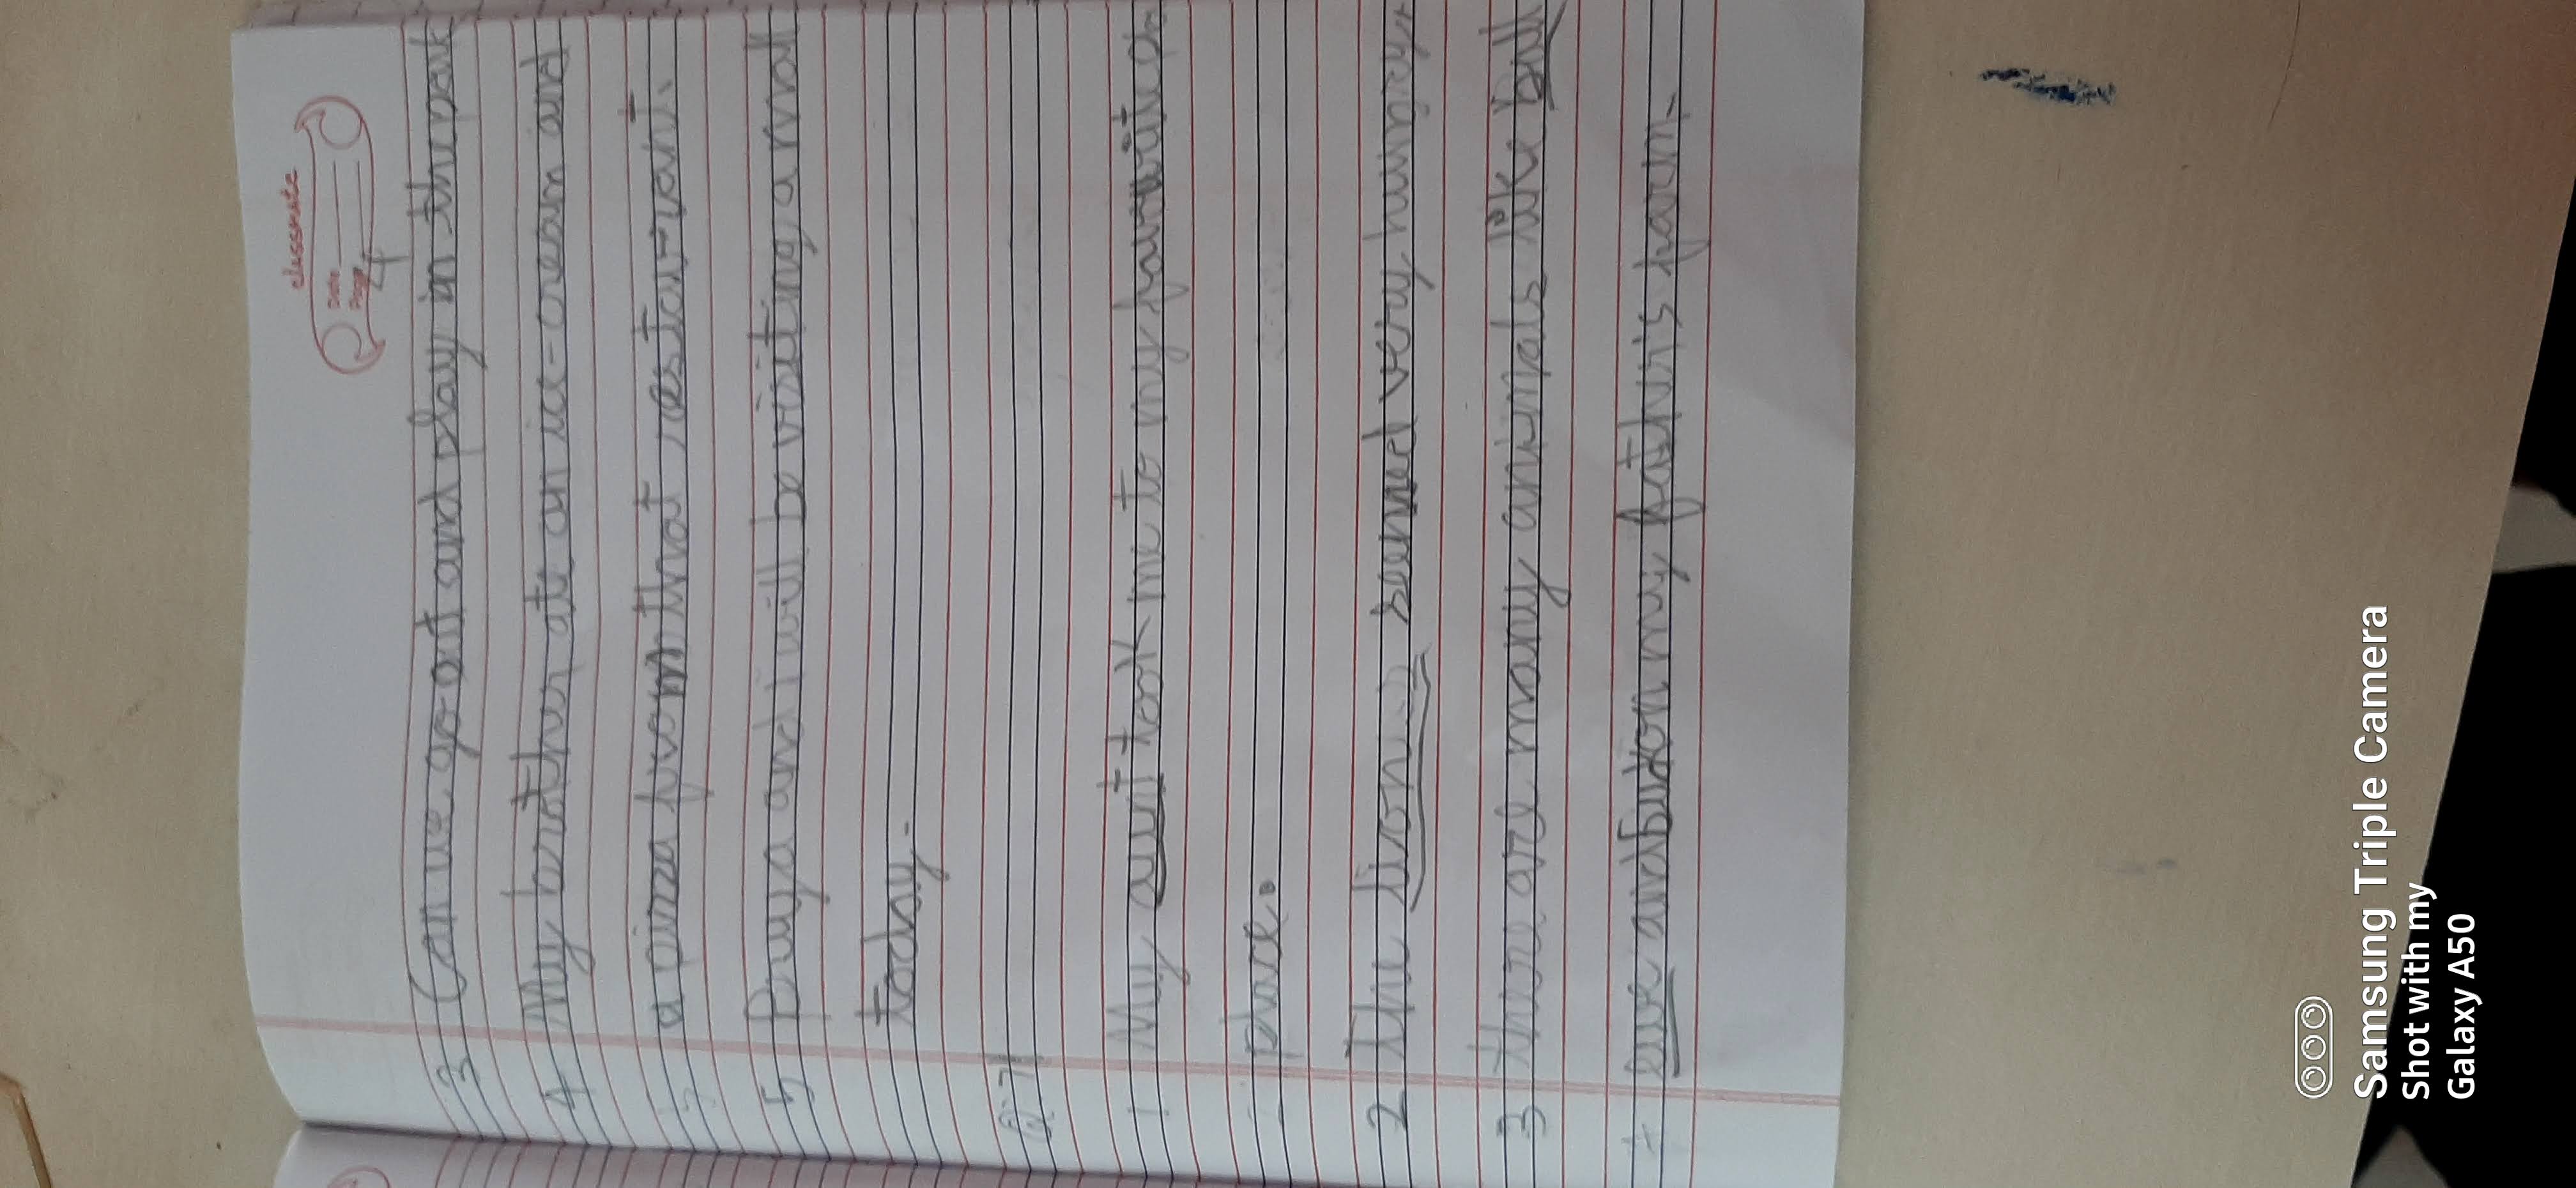 classmate
Date
Page 4
3 Can we go out and play in the park
4 My brother ate an ice-cream and
a pizza from that restaurant.
5 Pruya and i will be visiting a mall
today.
Q.7
1 My aunt took me to my favourite
place.
2 The lion seemed very hungry.
3 there are many animals like bull
ewe and on my father's farm.
Samsung Triple Camera
Shot with my
Galaxy A50